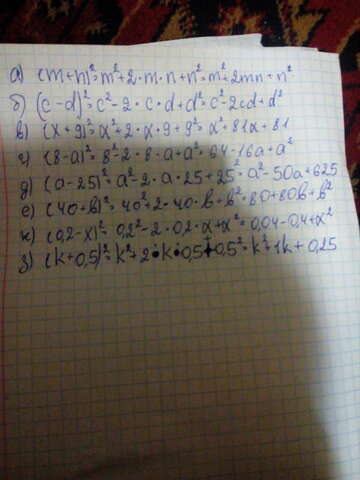 а) (m+n)²=m²+2·m·n+n²=m²+2mn+n².
б) (c-d)²=c²-2·c·d+d²=c²-2cd+d²
в) (x+9)²=x²+2·x·9+9²=x²+81x+81
г) (8-a)²=8²-2·8·a+a²=64-16a+a²
д) (a-25)²=a²-2·a·25+25²=a²-50a+625
е) (40+b)²=40²+2·40·b+b²=80+80b+b²
ж) (0,2-x)²=0,2²-2·0,2·x+x²=0,04-0,4+x²
з) (k+0,5)²=k²+2·k·0,5+0,5²=k²+1k+0,25